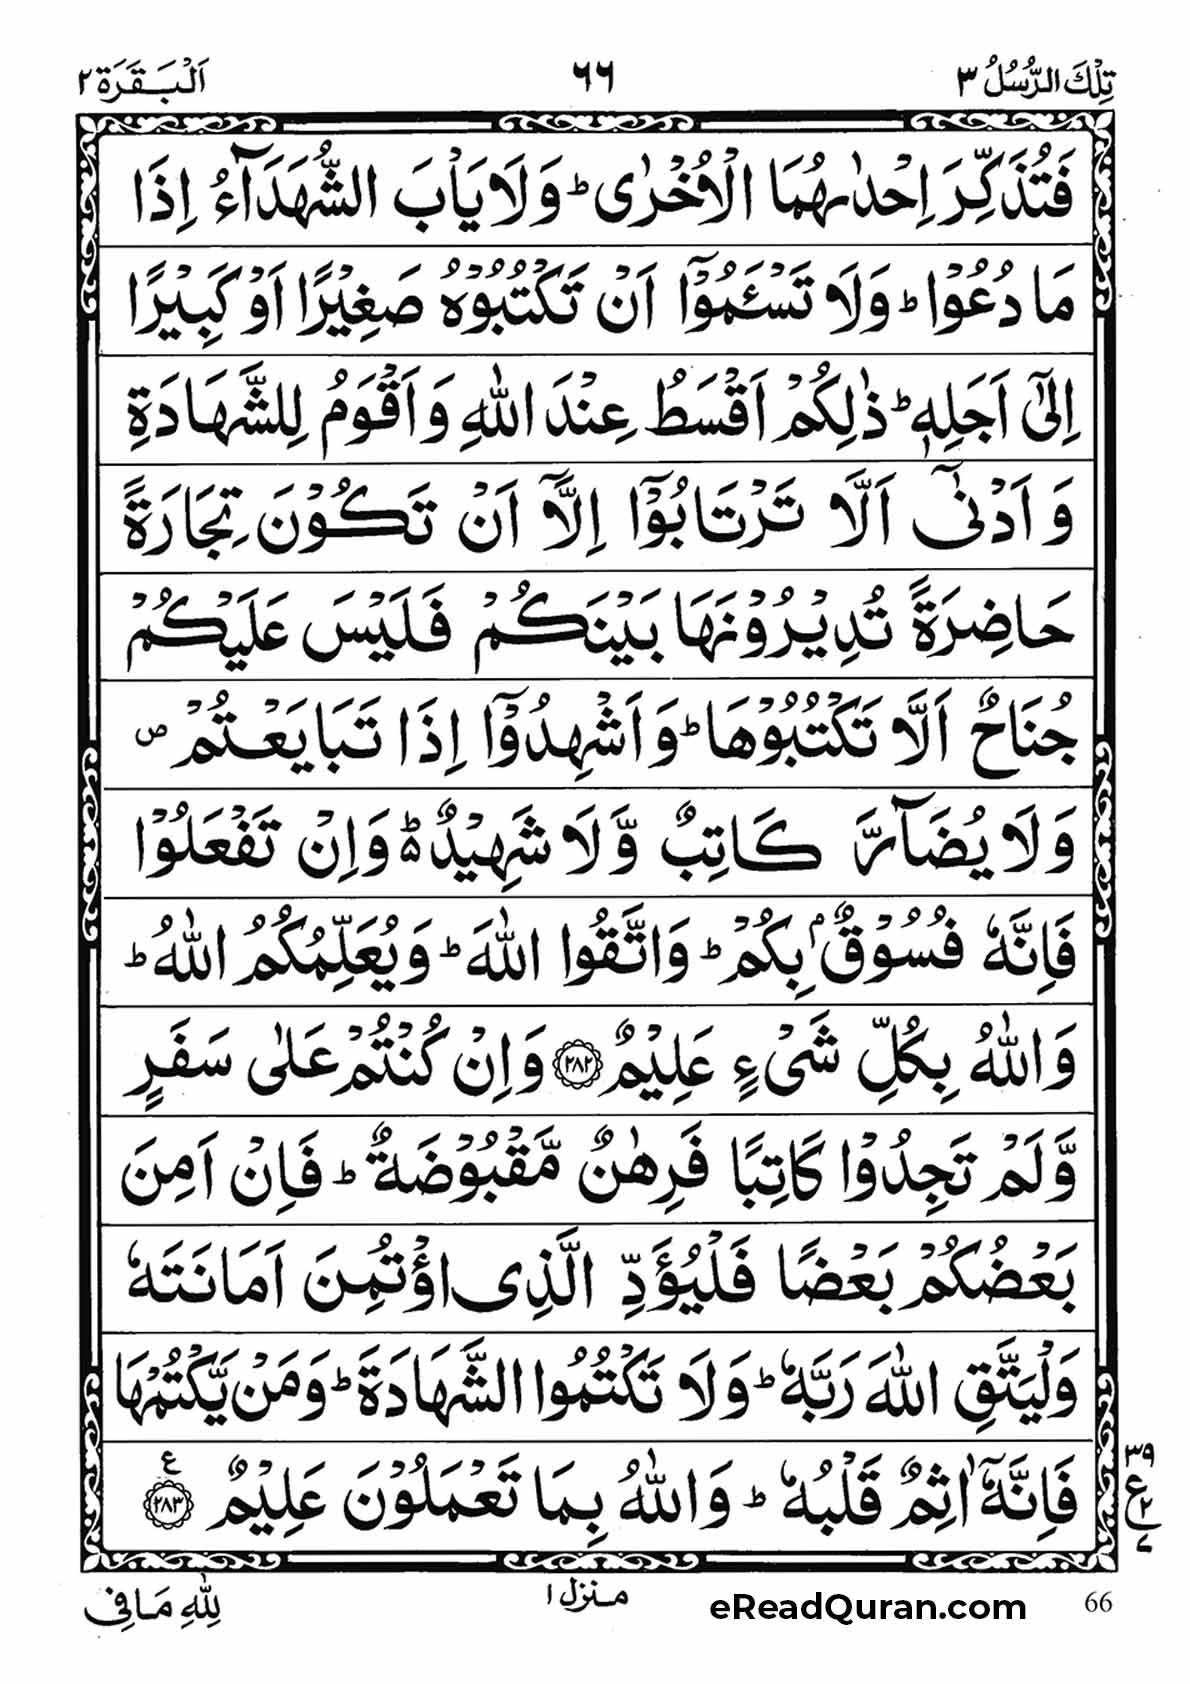 تِلْكَ الرُّسُلُ ٣
٦٦
اَلْبَقَرَة ٢
فَتُذَكِّرَ اِحْدٰىهُمَا الْاُخْرٰى ؕ وَلَا يَاْبَ الشُّهَدَآءُ اِذَا
مَا دُعُوْا ؕ وَلَا تَسْـَٔمُوْۤا اَنْ تَكْتُبُوْهُ صَغِيْرًا اَوْ كَبِيْرًا
اِلٰۤى اَجَلِهٖ ؕ ذٰلِكُمْ اَقْسَطُ عِنْدَ اللّٰهِ وَ اَقْوَمُ لِلشَّهَادَةِ
وَ اَدْنٰۤى اَلَّا تَرْتَابُوْۤا اِلَّاۤ اَنْ تَكُوْنَ تِجَارَةً
حَاضِرَةً تُدِيْرُوْنَهَا بَيْنَكُمْ فَلَيْسَ عَلَيْكُمْ
جُنَاحٌ اَلَّا تَكْتُبُوْهَا ؕ وَ اَشْهِدُوْۤا اِذَا تَبَايَعْتُمْ ۪
وَلَا يُضَآرَّ كَاتِبٌ وَّلَا شَهِيْدٌ ؕ۬ وَاِنْ تَفْعَلُوْا
فَاِنَّهٗ فُسُوْقٌۢ بِكُمْ ؕ وَاتَّقُوا اللّٰهَ ؕ وَيُعَلِّمُكُمُ اللّٰهُ ؕ
وَاللّٰهُ بِكُلِّ شَىْءٍ عَلِيْمٌ ٢٨٢ وَاِنْ كُنْتُمْ عَلٰى سَفَرٍ
وَّلَمْ تَجِدُوْا كَاتِبًا فَرِهٰنٌ مَّقْبُوْضَةٌ ؕ فَاِنْ اَمِنَ
بَعْضُكُمْ بَعْضًا فَلْيُؤَدِّ الَّذِى اؤْتُمِنَ اَمَانَتَهٗ
وَلْيَتَّقِ اللّٰهَ رَبَّهٗ ؕ وَلَا تَكْتُمُوا الشَّهَادَةَ ؕ وَمَنْ يَّكْتُمْهَا
فَاِنَّهٗۤ اٰثِمٌ قَلْبُهٗ ؕ وَاللّٰهُ بِمَا تَعْمَلُوْنَ عَلِيْمٌ ٢٨٣ ع
٣٩
ع
٢
٧
لِلّٰهِ مَا فِى
منزل ١
eReadQuran.com
66